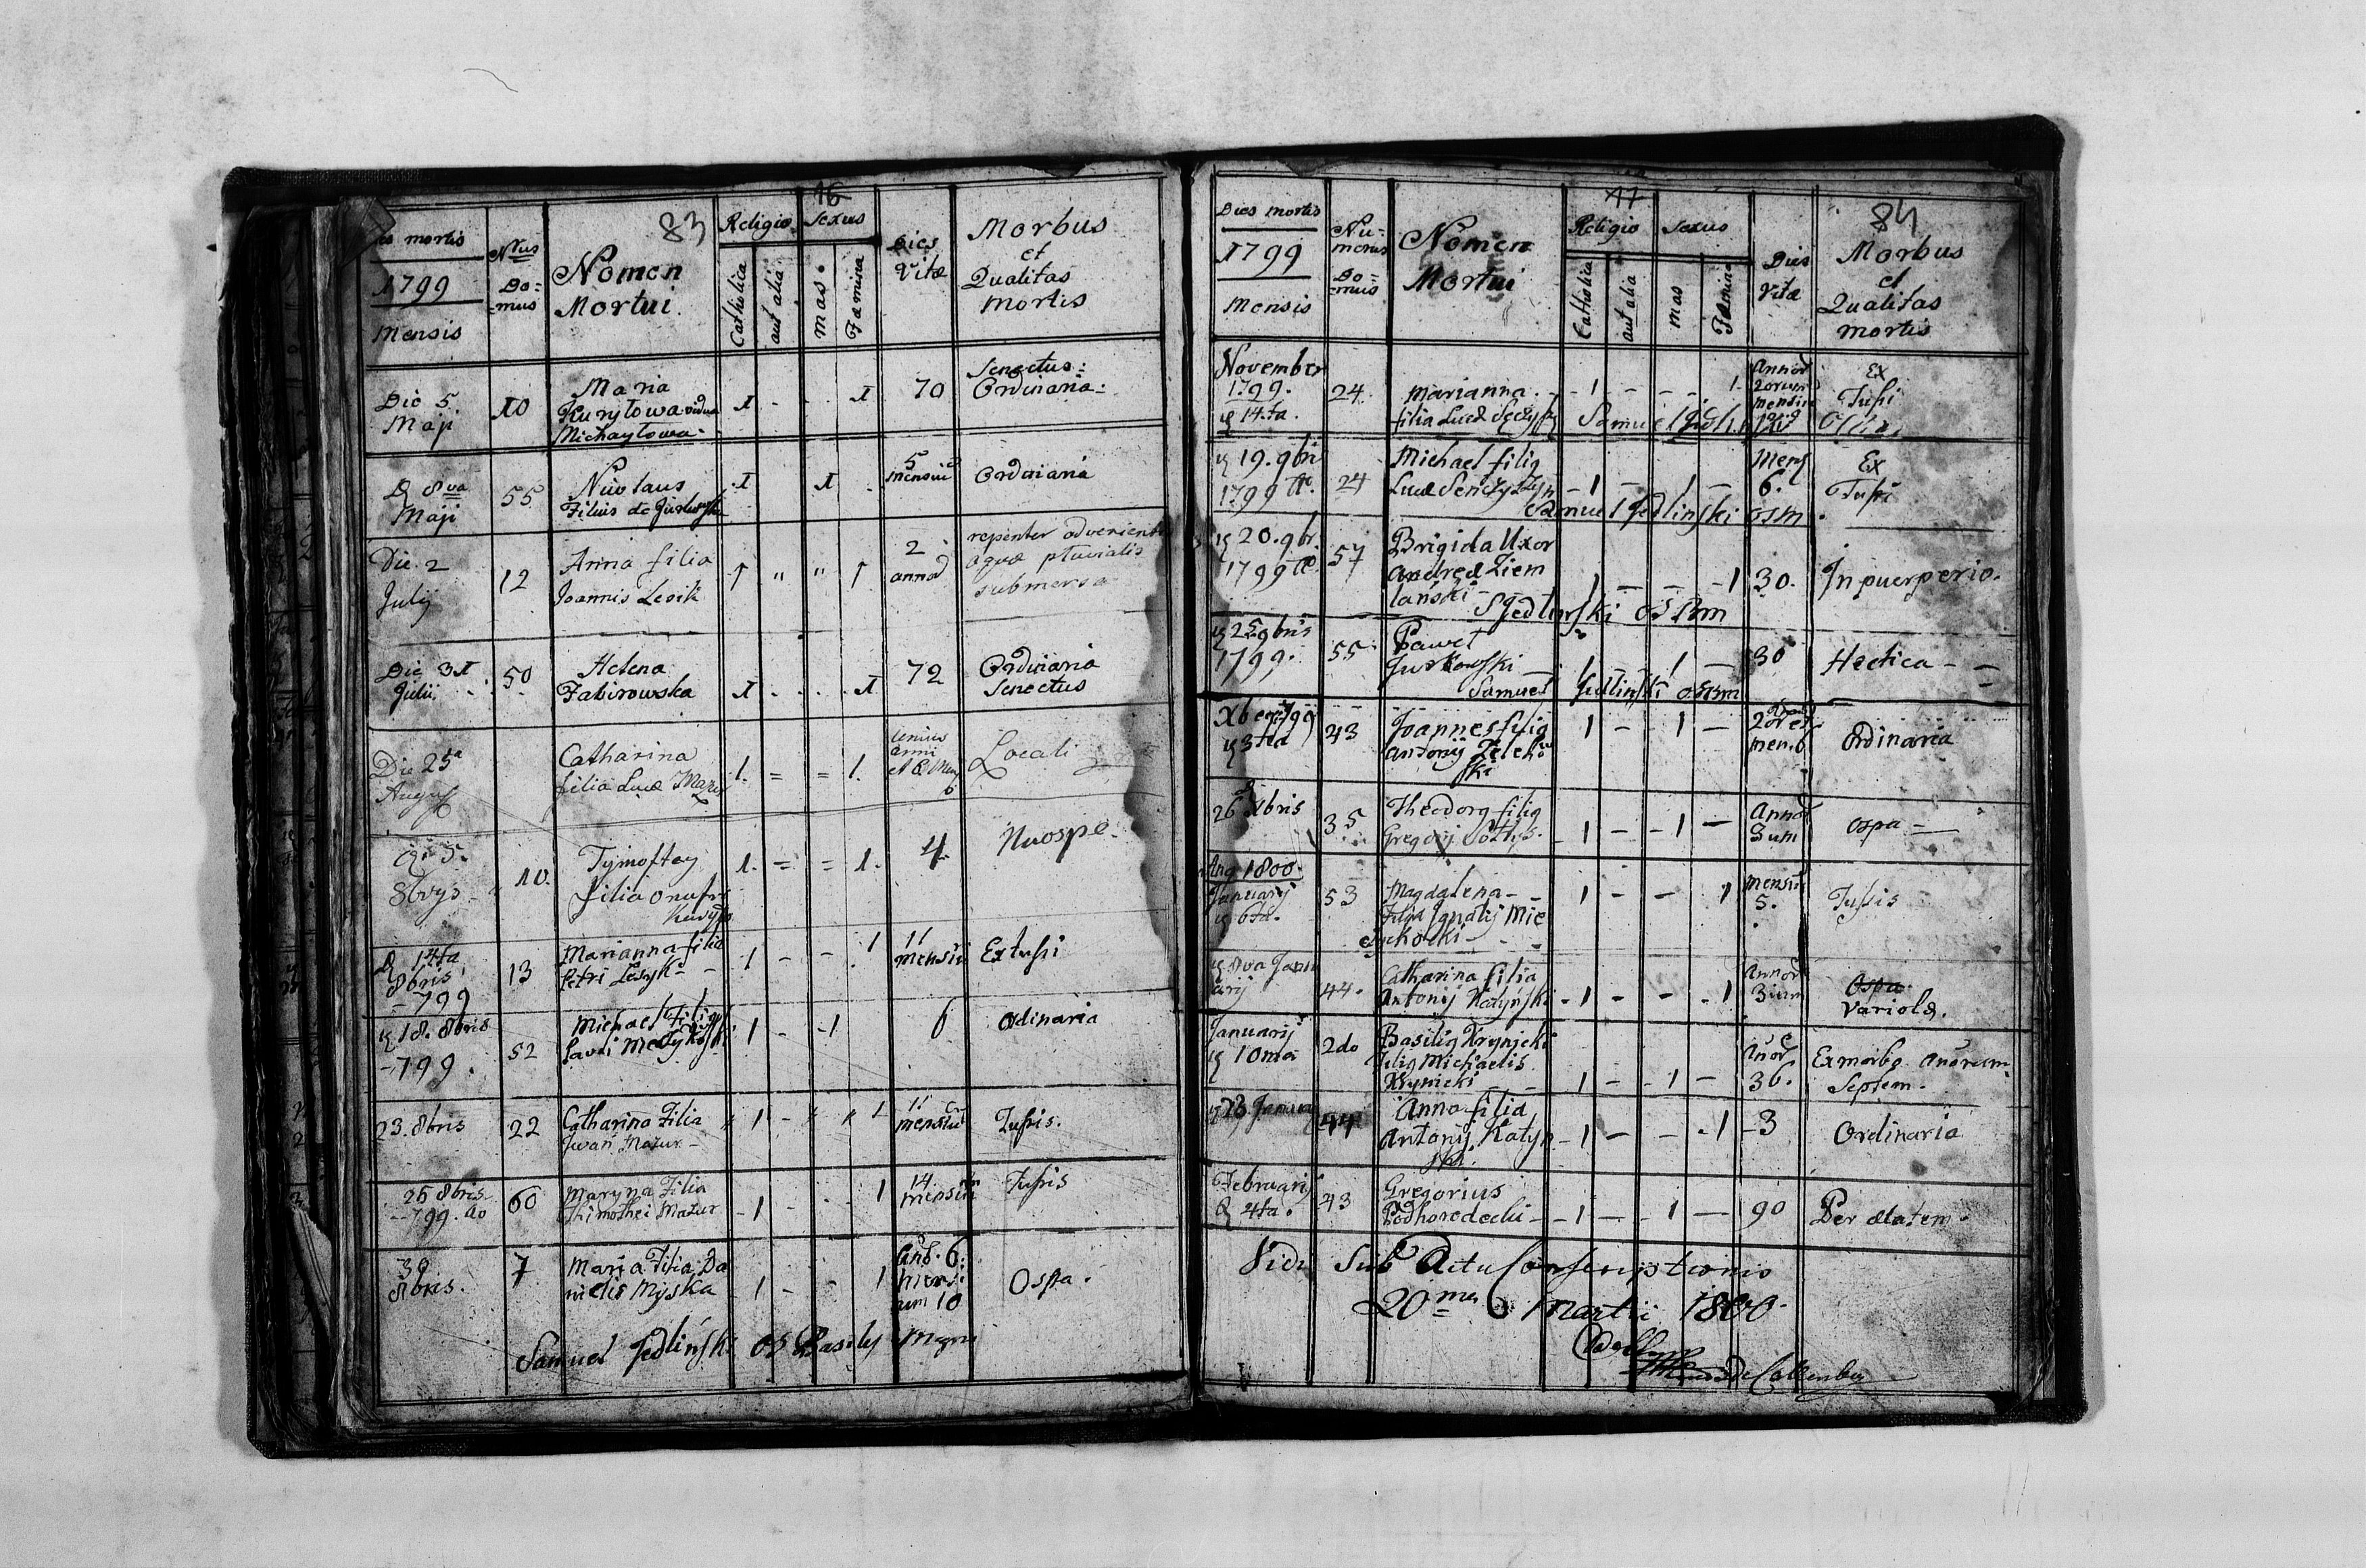 16
83
Dies mortis
1799
Mensis
Nus
Do=
mus
Nomen
Mortui.
Religio
Catholica
aut alia
Sexus
Mas.
Fœmina
Dies
Vitæ
Morbus
et
Qualitas
Mortis
Die 5
Maji
10
Maria
Kurytowa vidua
Michaytowa
1 - - 1
70
Senectus:
Ordinaria:
D 8va
Maji
55
Nicolaus
Filius de
1 1
5
mensiu
Ordinaria
Die 2
July
12
Anna filia
Joannis Lesik
1 " " 1
2
annor
repenter
aquæ pluvialis
submersa
Die 31
Julii
50
Helena
Fabirowska
1 - - 1
72
Ordinaria
Senectus
Die 25a
August
Catharina
filia Lucæ Mazur
1. = = 1.
unius
anni
Locali
5.
8brys
10.
Tymoftey
filia Onufr
1. = = 1.
4
Nuospe.
D 14ta
8bris
-799
13
Marianna filia
Petri Lesyk
1 - - 1
11
mensiu
Ex tussi
18. 8bris
-799.
52
Michael filig
Pauli
1 - -1
6
Ordinaria
23. 8bris
22
Catharina Filia
Iwan Mazur -
1 - 1
11
mensiu
Tussis.
25 8bris
-799. ao
60
Maryna Filia
Thimothei Mazur
- 1 - - 1
14
mensiu
Tussis
30
8bris.
7
Maria Filia Da
nielis Myska
- 1 - - 1
6.
mensi
um 10
Ospa.
Samuel Jedlinski OS Basily Magni
17
84
Dies mortis
1799
Mensis
Nu=
merus
Do=
mus
Nomen
Mortui
Religio
Catholica
aut alia
Sexus
mas
Fœmina
Dies
Vitæ
Morbus
et
Qualitas
mortis
November
1799.
14.ta.
24
Marianna
filia Lucæ
- 1 - - 1
Annor
2orum
Ex
Tussi
Samuel
19. 9bri
1799
24
Michael filig
Lucæ
- 1 - 1 -
Mens
6.
Ex
Tussi
Samuel Jedlinski osm.
20. 9br
1799
57
Brigida Uxor
Andreæ Ziem
lanski
1 - - -1
30.
In puerperio.
S Jedlinski OSBm
25 9bris
1799.
55.
Pawel
1 - 1 -
30
Hectica - -
Samuel Jedlinski osBm
Xber 799
3tia
43
Joannes filig
Antonij Zelehow
ski
1 - 1 -
2or et
men. 6
Ordinaria
26 Xbris
35
Theodorg filig
Gregorij
- 1 - - 1 -
Annor
3um
Ospa -
Ano 1800.
Januarij
6ta.
53
Magdalena -
Filia Ignatij Mie
1 - - 1
Mensiu
5.
Tussis
8va Janu
arij
44.
Catharina filia
Antonij Katynski
- 1 - - - 1
Annor
3ium
Ospa
Variola.
Januarij
10ma
2do
Basilig Krynicki
filig Michaelis
Krynicki
- 1 - - 1 -
Anor
36.
Ex morbo Anorum
Septem -
23. Januar
44
Anna filia
Antonij Katyn
ski.
- 1 - - - 1
- 3
Ordinaria
Februarij
D 4ta.
43
Gregorius
Podhorodecki -
- 1 - - 1 -
90
Per ætatem.
Vidi Sub Actu Conscriptionis
20ma Martii 1800.